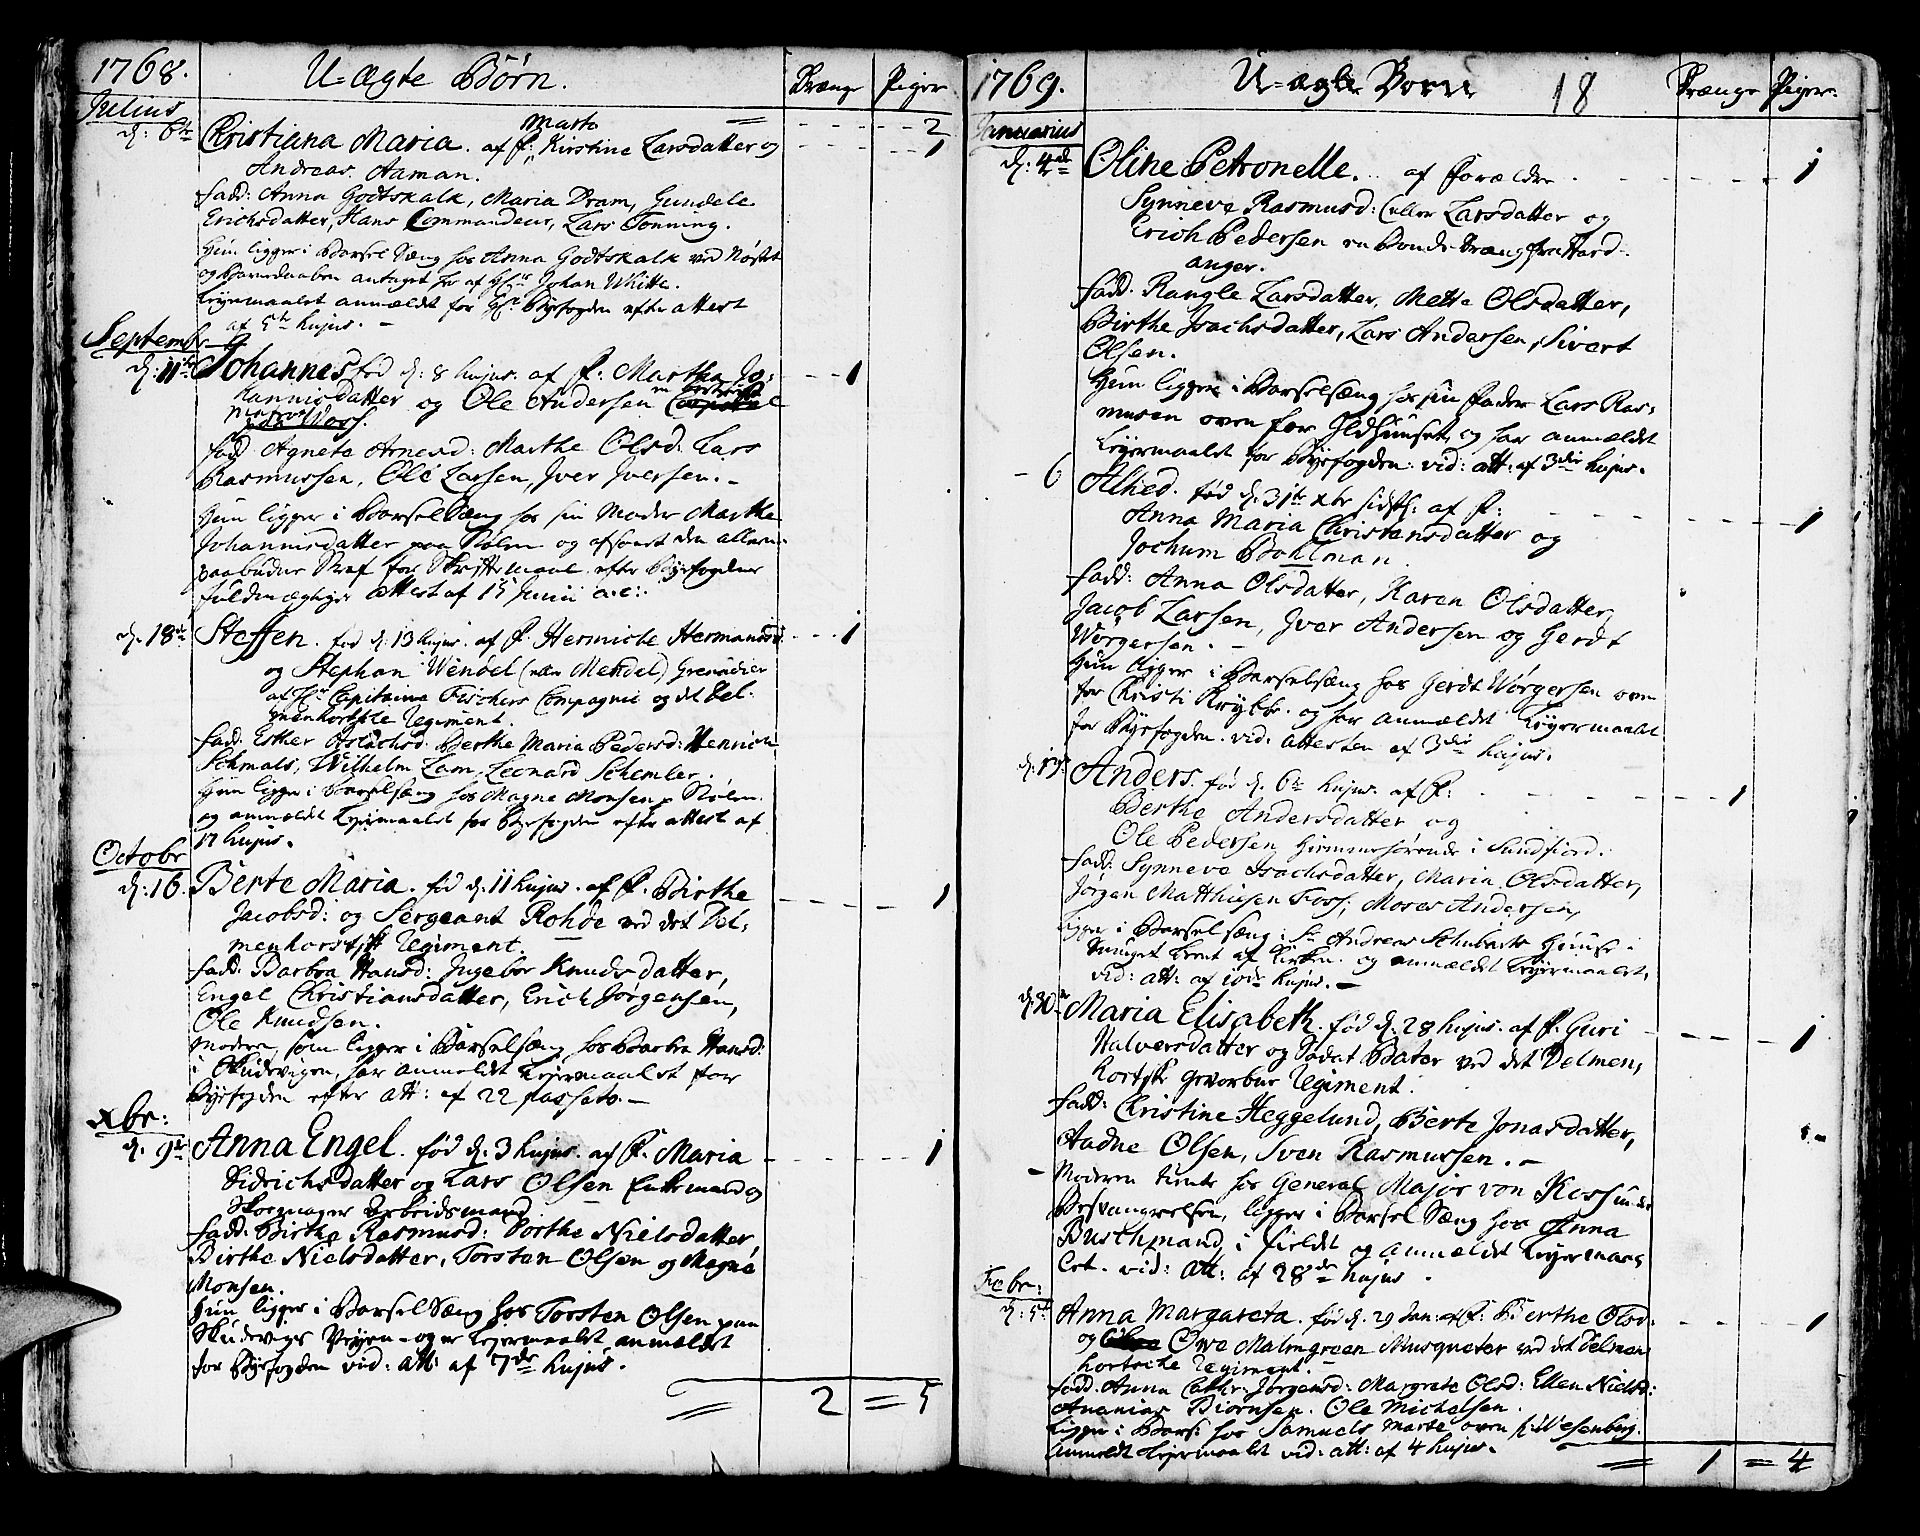 1768. U-ægte Børn. Drænge Piger
Julius = - - - - 2
d: 6te Christiana Maria. af F: Marte Kirstine Larsdatter og - - - - 1
Andreas Aaman.
Fadd: Anna Godtskalk, Maria Dram, Gundele
Erichsdatter, Hans Commandeur, Lars Tonning.
Hun ligger i Barsel Sæng hos Anna Godtskalk ved Nøstet
og Barnedaaben antaget for af Hr Johan Whitte.
Leyermaalet anmældet for Hr: Byefogden efter attest
af 5te hujus. -
Septembr
d: 11te Johannes fød d: 8 hujus. af F: Martha Jo= - - - 1
hannisdatter og Ole Andersen en
Vors.
Fadd: Agneta Arnesd: Marthe Olsd: Lars
Rasmussen, Ole Larsen, Iver Iversen. -
Hun ligger i Barsel Sæng hos sin Moder Marthe
Johannisdatter paa Stølen og afsonet den aller=
paabudne Straf for Skriftemaal efter Byefogdens
fuldmægtiges attest af 15 Junii a.c:.
d. 18de Steffen. fød d: 13 hujus. af F: Hermiche Hermansd: - - - 1
og Stephan Wendel (eller Mendel) Grenadier
af Hr Capitaine Fischers Compagnie og det Del-
menhorstske Regiment.
Fadd: Esther Aslachsd: Berthe Maria Pedersd: Hennich
Schmals, Wilhelm Lam, Leonard Schemler.
Hun ligger i Barselsæng hos Magne Monsen p. Stølen.
og anmældet Leyermaalet for Byefogden efter attest af
17 hujus.
Octobr
d: 16. Berte Maria. fød d: 11 hujus. af F. Birthe - - - 1
Jacobsd: og Sergeant Rohde ved det Del=
menhorstske Regiment.
Fadd: Barbra Hansd: Ingebor Knudsdatter,
Engel Christiansdatter, Erich Jørgensen,
Ole Knudsen.
Modern, som ligger i Barselsæng hos Barbra Hansd:
i Skudevigen, har anmeldet Leyermaalet for
Byefogden efter att: af 22 passato. -
xbr:
d. 9de Anna Engel. fød d: 3 hujus. af F. Maria - - - 1
Didrichsdatter og Lars Olsen Enkemand og
Skoemager Arbeidsmand
Fadd: Birthe Rasmusd: Dorthe Nielsdatter
Birthe Nielsdatter, Torsten Olsen og Magne
Monsen.
Hun ligger i Barsel Sæng hos Torsten Olsen paa
Skudevigs Veyen - og er Leyermaalet anmældet
for Byefogden vid: att: af 7de hujus.
= 2 = 5
1769. U-ægte Børn 18 Drænge Piger
Januarius
d: 4de Oline Petronelle. af Forældre - - - 1
Synneve Rasmusd: (eller Larsdatter og
Erich Pedersen en Bonde Dræng fra Hard:
anger.
Fadd. Rangle Larsdatter, Mette Olsdatter,
Birthe Isachsdatter, Lars Andersen, Sivert
Olsen.
Hun ligger i Barselsæng hos sin Fader Lars Ras=
musen oven for Ildhuuset, og har anmældet
Leyermaalet for Byefogden: vid: att: af 3die hujus.
- 6 Alhed. fød d. 31te xbr sidstl: af F: - - - 1
Anna Maria Christensdatter og
Jochum Bohlman.
Fadd: Anna Olsdatter, Karen Olsdatter,
Jacob Larsen, Iver Andersen og Gerdt
Wørgersen. -
Hun ligger i Barselsæng hos Gerdt Wørgersen oven
for Christi Krybbe. og har anmældet Leyermaalet
for Byefogden. vid. attesten af 3die hujus.
d. 13. Anders. fød d. 6te hujus. af F: - - - 1
Berthe Andersdatter og
Ole Pedersen hiemmehørende i Sundfiord.
Fadd: Synneve Isachsdatter, Maria Olsdatter,
Jørgen Matthiesen Foss, Moses Andersen,
Ligger i Barselsæng i Sr Andreas Schuberts Huuse i
Smuget bent af Kirken. og anmældet Leyermaalet,
vid: att: af 10de hujus. -
d. 30te Maria Elisabeth. fød d. 28 hujus. af F. Guri - - - 1
Halversdatter og Soldat Bater ved det Delmen,
horstsk gevorbne Regiment.
Fadd: Christine Heggelund, Berte Jonasdatter,
Aadne Olsen, Sven Rasmussen. -
Moderen tiente hos General Major von Kossun der
Besvangrelsen, ligger i Barsel Sæng hos Anna
Busthmand i Fieldet og anmældet Leyermaa=
let. vid: att: af 28de hujus.
Febr:
d: 5te Anna Margareta. fød d. 29 Jan: af F: Berthe Olsd: - - - 1
og Ove Malmgreen Musqueter ved det Delmen
horstske Regiment.
Fadd. Anna Cathr: Jørgensd: Margrete Olsd: Ellen Nielsd:
Ananias Biørnsen. Ole Michelsen.
Ligger i Bars: hos Samuels Marte oven f. Wesenberg.
Anmeldt Leyermaalet vid: att: af 4 hujus.
= 1 = 4